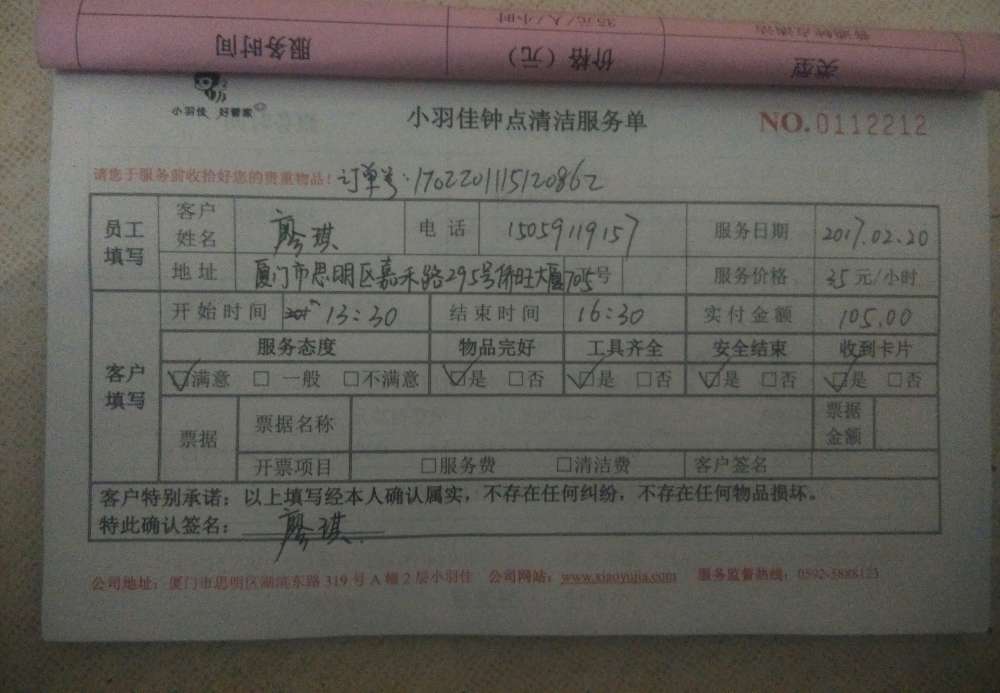 普通钟点清洁 35元/人/小时
类型 价格（元） 服务时间
小羽佳 好管家
小羽佳钟点清洁服务单
NO.0112212
请您于服务前收拾好您的贵重物品！订单号：1702201115120862
员工填写 客户姓名 廖琪 电话 15059119157 服务日期 2017.02.20
地址 厦门市思明区嘉禾路295号侨旺大厦705号 服务价格 35元/小时
客户填写 开始时间 13:30 结束时间 16:30 实付金额 105.00
服务态度 物品完好 工具齐全 安全结束 收到卡片
☑满意 □一般 □不满意 ☑是 □否 ☑是 □否 ☑是 □否 ☑是 □否
票据 票据名称 票据金额
开票项目 □服务费 □清洁费 客户签名
客户特别承诺：以上填写经本人确认属实，不存在任何纠纷，不存在任何物品损坏。
特此确认签名：廖琪
公司地址：厦门市思明区湖滨东路319号A幢2层小羽佳 公司网站：www.xiaoyujia.com 服务监督热线：0592-5888123